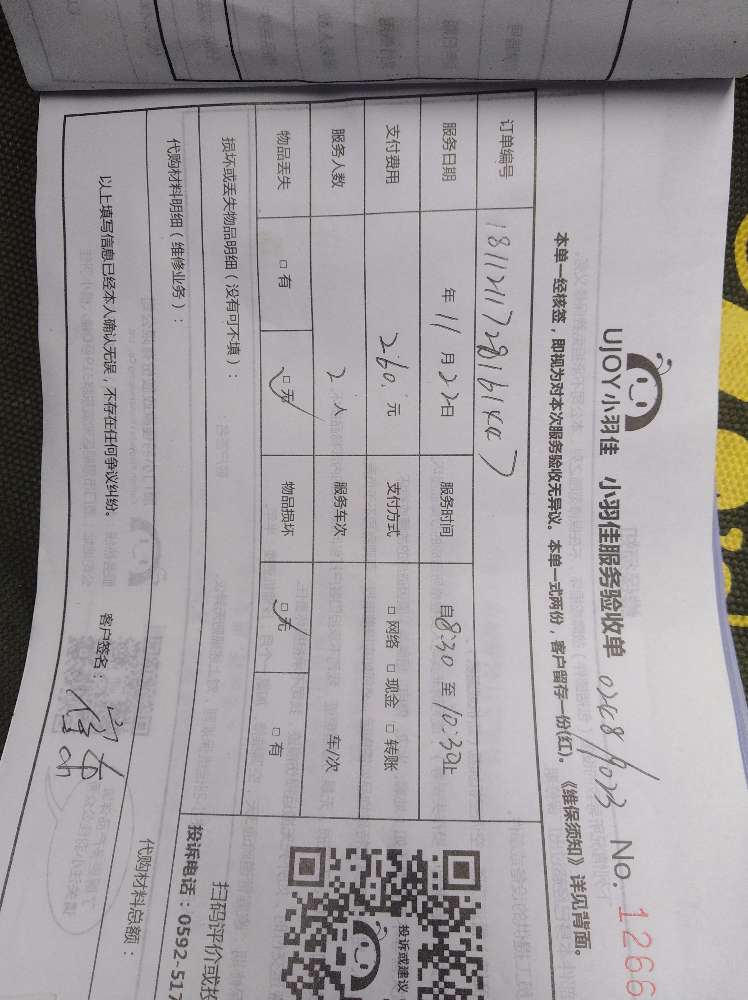 UJOY小羽佳 小羽佳服务验收单 0248/9023 No. 1266
本单一经核签，即视为对本次服务验收无异议。本单一式两份，客户留存一份(红)。《维保须知》详见背面。
订单编号 1811211728161447
服务日期 年 11 月 22 日 服务时间 自 8:30 至 10:30 止
支付费用 260. 元 支付方式 □ 网络 □ 现金 □ 转账
服务人数 2 人 服务车次 车/次
物品丢失 □ 有 ☑ 无 物品损坏 ☑ 无 □ 有
损坏或丢失物品明细（没有可不填）：
代购材料明细（维修业务）：
代购材料总额：
以上填写信息已经本人确认无误，不存在任何争议纠纷。 客户签名：
投诉或建议
扫码评价或投
投诉电话：0592-517